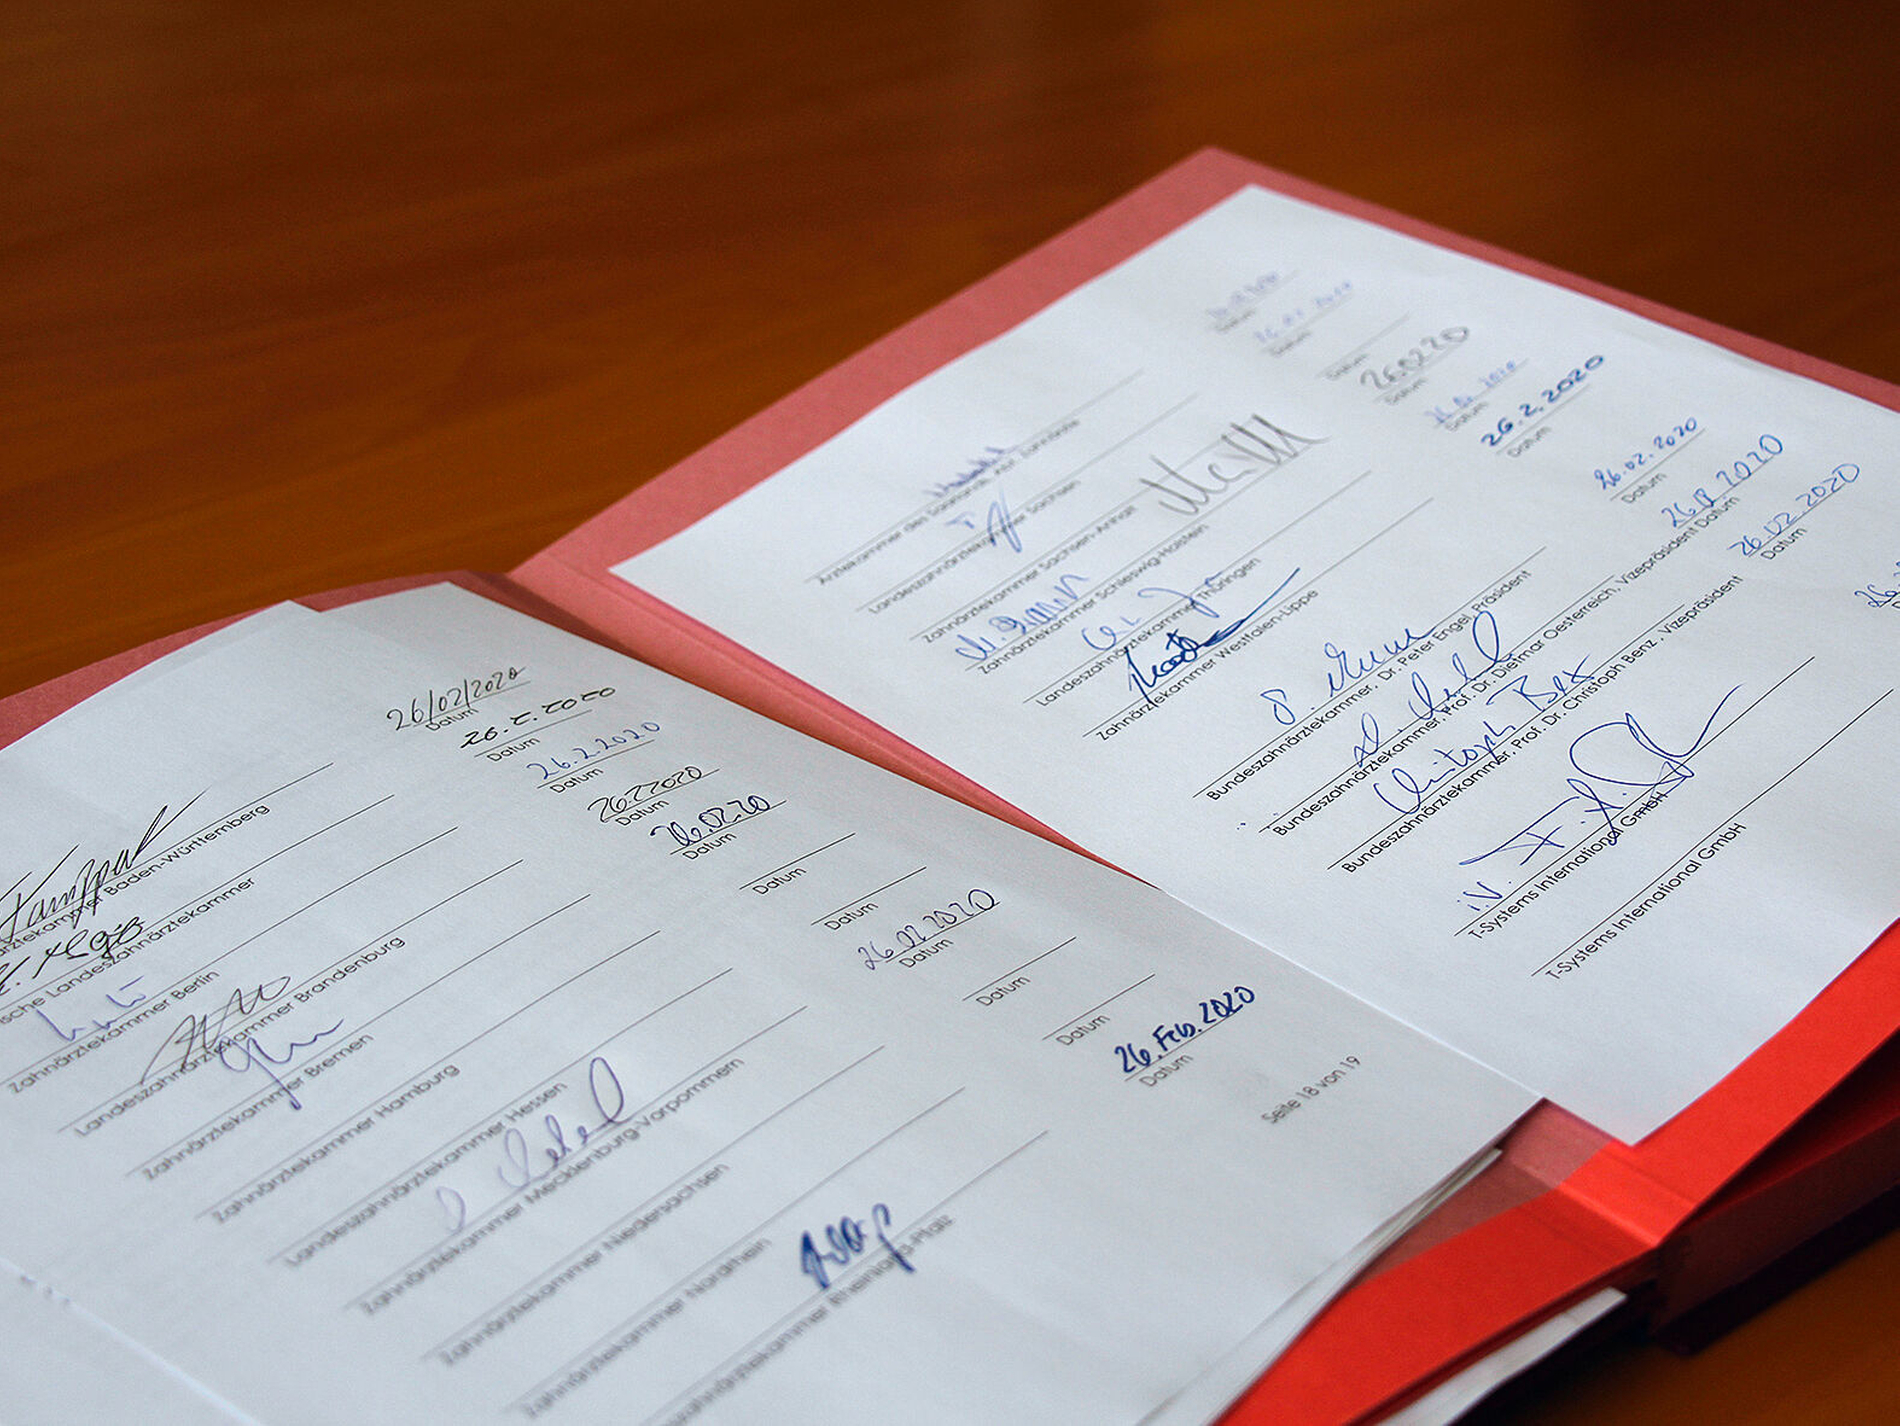 26/02/2020
Datum
Baden-Württemberg
26.2.2020
Datum
Landeszahnärztekammer
26.2.2020
Datum
Zahnärztekammer Berlin
26.2.2020
Datum
Landeszahnärztekammer Brandenburg
26.02.20
Datum
Zahnärztekammer Bremen
Datum
Zahnärztekammer Hamburg
Datum
Landeszahnärztekammer Hessen
26.02.2020
Datum
Zahnärztekammer Mecklenburg-Vorpommern
Datum
Zahnärztekammer Niedersachsen
Datum
Zahnärztekammer Nordrhein
26. Feb. 2020
Datum
Rheinland-Pfalz
Seite 18 von 19
Datum
Ärztekammer des Saarlands, Abt. Zahnärzte
Datum
Landeszahnärztekammer Sachsen
Datum
Zahnärztekammer Sachsen-Anhalt
26.02.20
Datum
Zahnärztekammer Schleswig-Holstein
Datum
Landeszahnärztekammer Thüringen
26.2.2020
Datum
Zahnärztekammer Westfalen-Lippe
26.02.2020
Datum
Bundeszahnärztekammer, Dr. Peter Engel, Präsident
26.02.2020
Datum
Bundeszahnärztekammer, Prof. Dr. Dietmar Oesterreich, Vizepräsident
26.02.2020
Datum
Christoph Benz
Bundeszahnärztekammer, Prof. Dr. Christoph Benz, Vizepräsident
i.V.
T-Systems International GmbH
T-Systems International GmbH